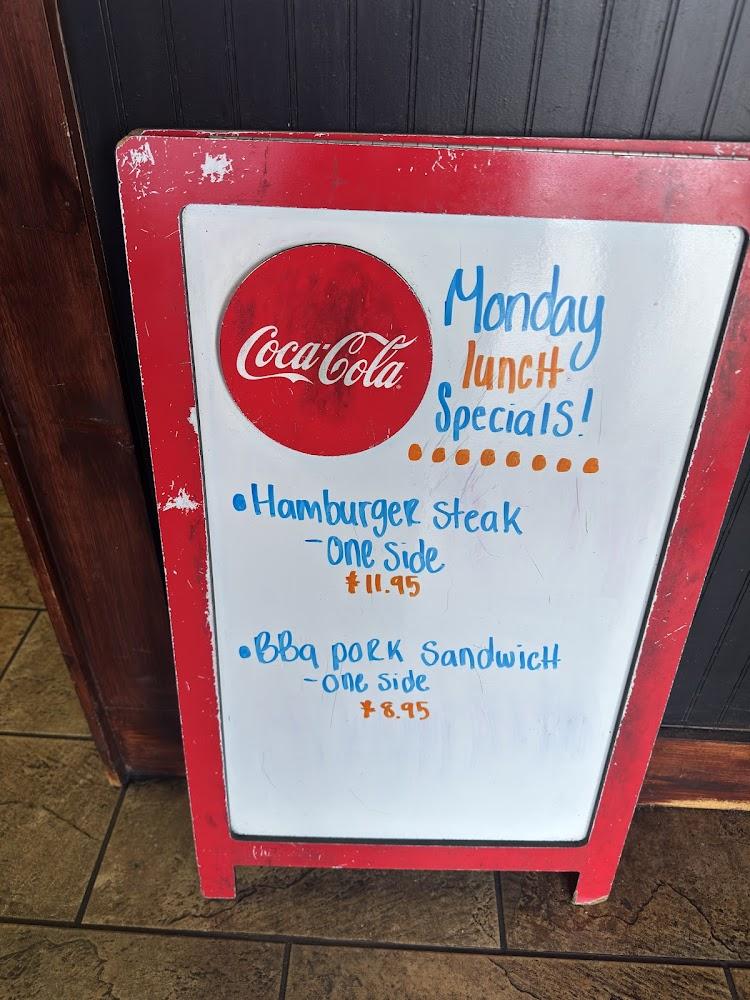 Coca-Cola
Monday
lunch
Specials!
•Hamburger steak
-one side
$11.95
•BBq pork sandwich
-one side
$8.95